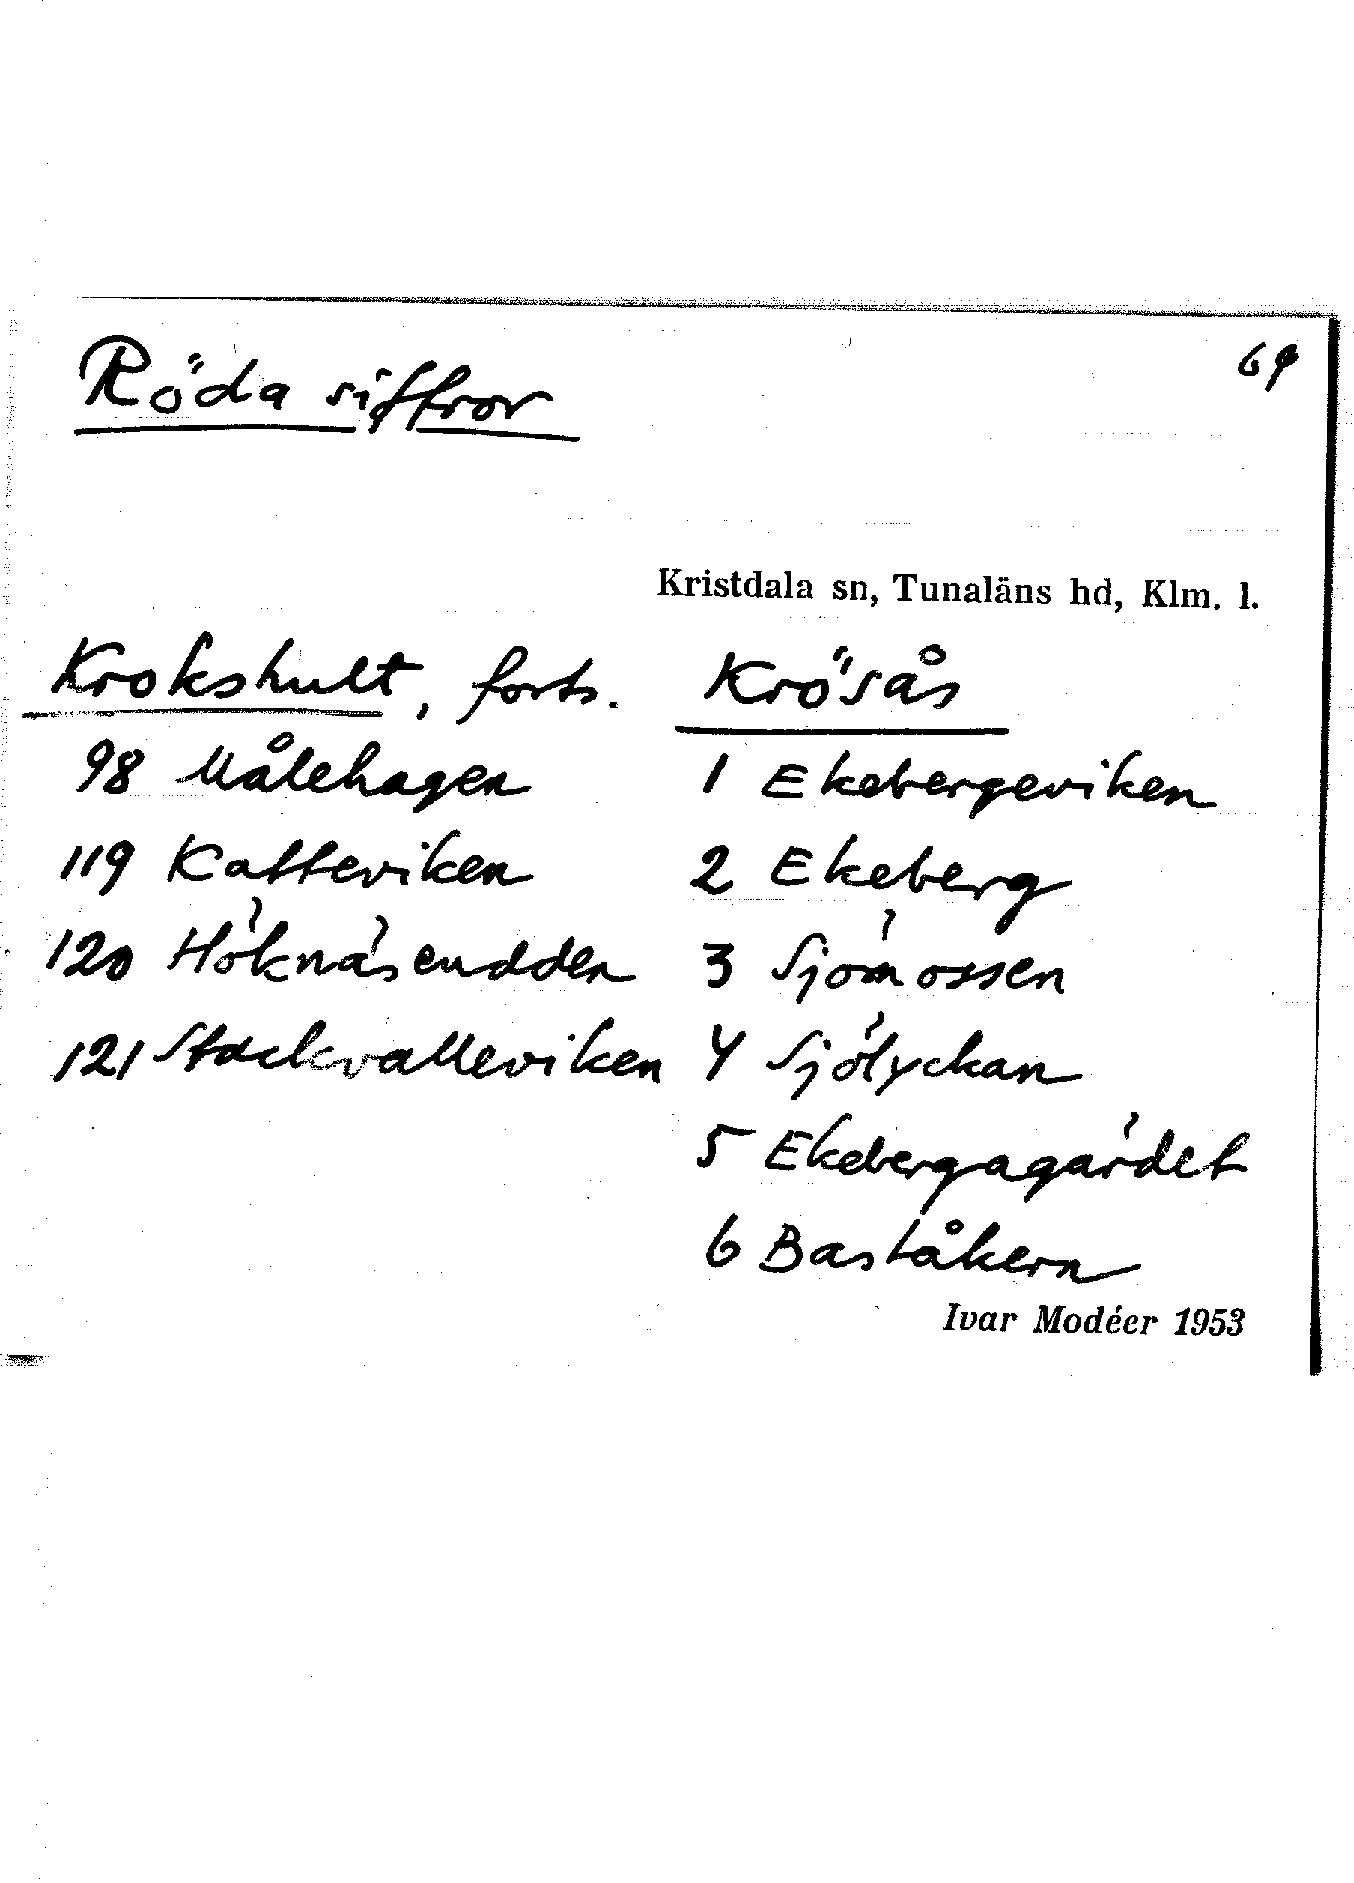 Röda siffror
69
Kristdala sn, Tunaläns hd, Klm. l.
Krokshult, forts.
98 Målehagen
119 Katteviken
120 Höknäsendden
121 Stackvalleviken
Krösås
1 Ekebergeviken
2 Ekeberg
3 Sjömossen
4 Sjölyckan
5 Ekebergagärdet
6 Baståkern
Ivar Modéer 1953